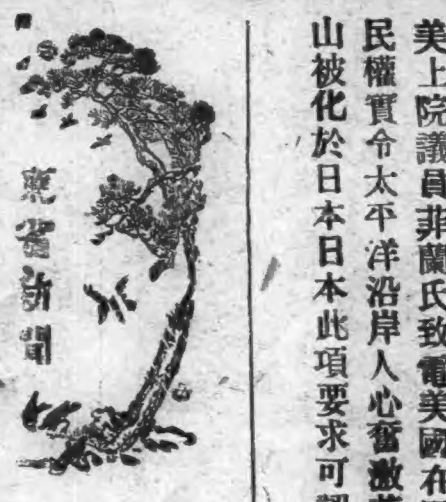 美上院議員菲蘭氏致電美國在
民權實令太平洋沿岸人心奮激
山被化於日本日本此項要求可
東省新聞